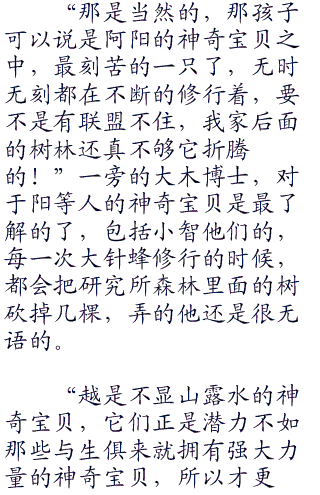 “那是当然的，那孩子
可以说是阿阳的神奇宝贝之
中，最刻苦的一只了，无时
无刻都在不断的修行着，要
不是有联盟不住，我家后面
的树林还真不够它折腾
的！”一旁的大木博士，对
于阳等人的神奇宝贝是最了
解的了，包括小智他们的，
每一次大针蜂修行的时候，
都会把研究所森林里面的树
砍掉几棵，弄的他还是很无
语的。
“越是不显山露水的神
奇宝贝，它们正是潜力不如
那些与生俱来就拥有强大力
量的神奇宝贝，所以才更